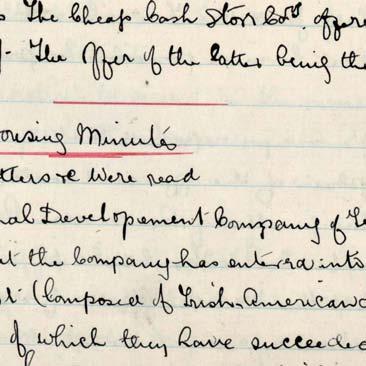 s The Cheap Cash Stor Cos. offere
. The Offer of the Latter being the
orising Minutes
tters &c Were read
nal Developement Company of Ire
t the Company has entered into
t (Composed of Irish-Americans
of which they have succeeded